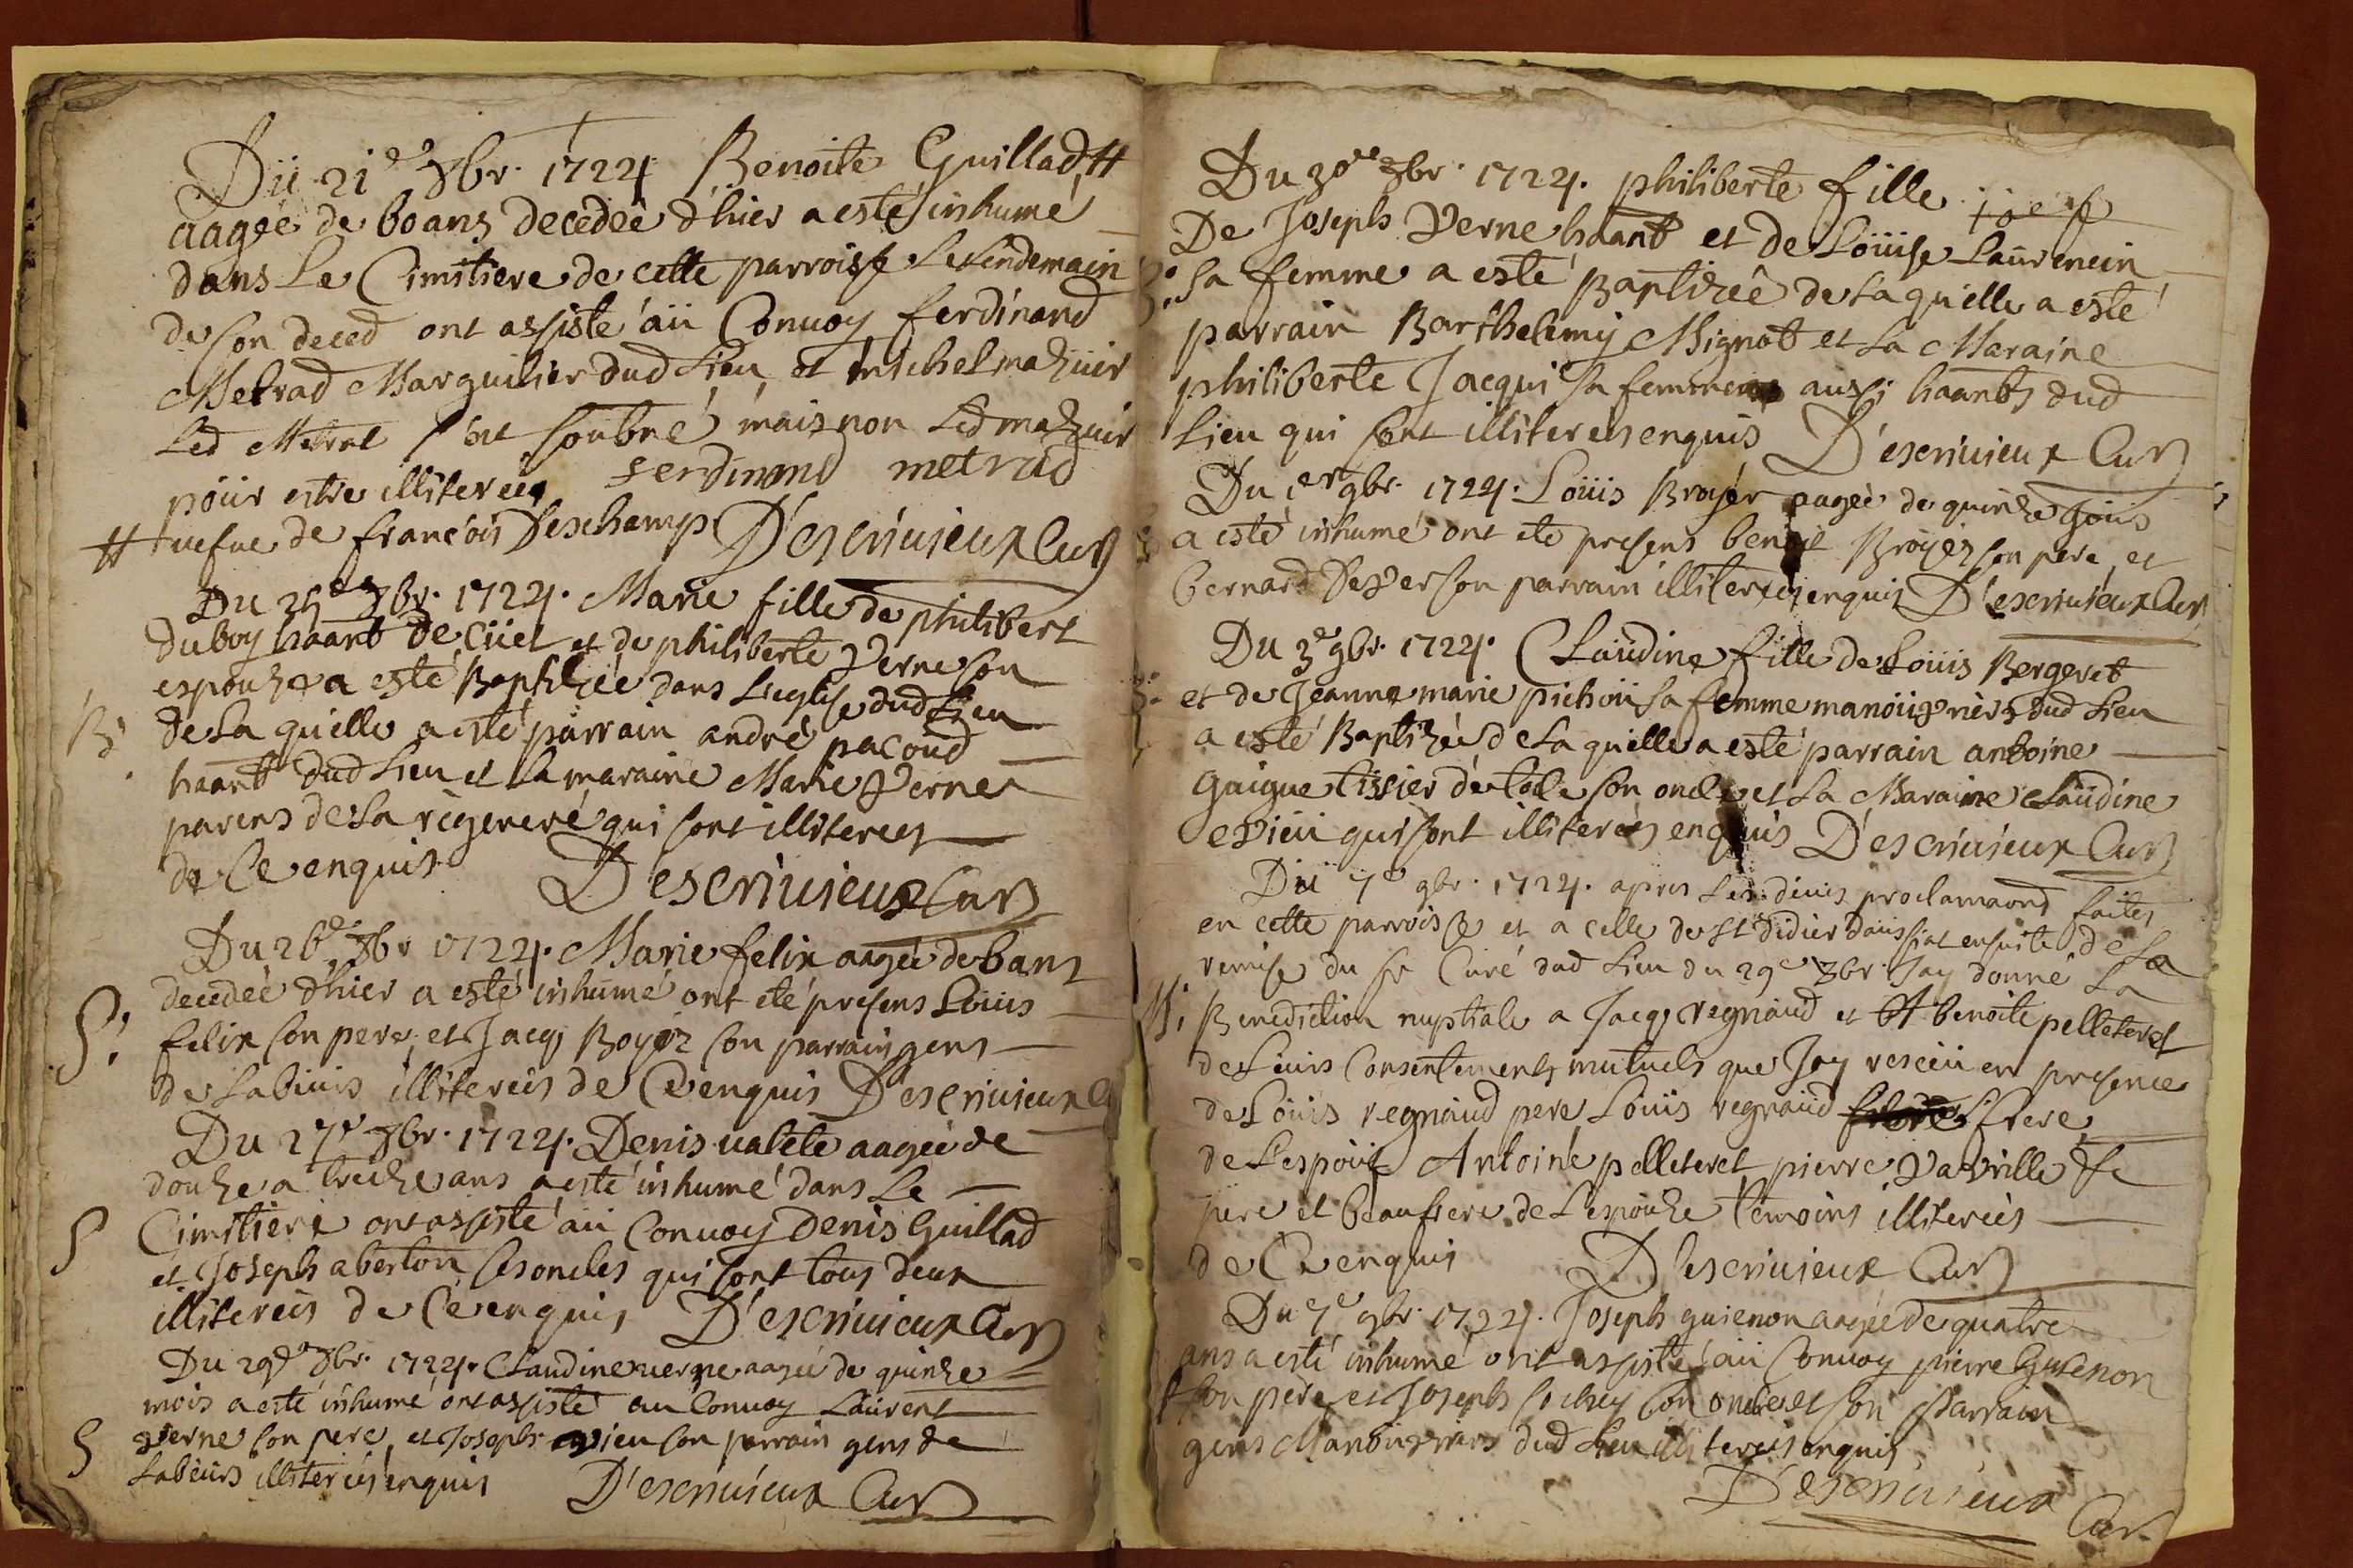 Du 21e 8br. 1724 Benoite Guillad #
aagée de 60 ans decedeé d'hier a esté inhumé
dans Le Cimitiere de cette parroisse Le Lendemain
de son deced ont assisté au Convoy ferdinand
Metrad Marguilier dud Lieu et michel mazuir
Led Metral s'est soubné mais non Led mazuir
pour estre illitereés ferdinand metrad
# uefue de francois Deschamp D'escriuieux Cur
Du 25e 8br. 1724. Marie fille de philibert
duboy haant de Ciiet et de philiberte Verne son
espouze a esté Baptizée dans L'eglise dud Lieu
B. de La quelle a esté parrain andré pacoud
haant dud Lieu et La maraine Marie Verne
parens de La regeneré qui sont illitereés
de Ce enquis D'escriuieux Cur
Du 26e 8br 1724. Marie felix aagée de 6 ans
decedeé d'hier a esté inhumé ont eté presens Louis
S. felix son pere et Jacq Boyer son parrain gens
de Labeurs illitereés de Ce enquis D'escriuieux C
Du 27e 8br. 1724. Denis valete aageé de
douze a treize ans a esté inhumé dans Le
S Cimitiere ont assisté au Convoy Denis Guillad
et Joseph aberton ses oncles qui sont tous deux
illitereés de Ce enquis D'escriuieux Cur
Du 29e 8br. 1724. Claudine verne aagée de quinze
mois a esté inhumé ont assisté au Convoy Laurent
S verne son pere et Joseph evieu son parrain gens de
Labeurs illitereés enquis D'escriuieux Cur
Du 30e 8br. 1724. philiberte fille
De Joseph Verne haant et de Loüise Laurencin
B. sa femme a esté Baptizeé de La quelle a esté
parrain Barthelemy Mignot et La Maraine
philiberte Jacqui sa femme aussi haants dud
Lieu qui sont illitereés enquis D'escriuieux Cur
Du 1er 9br. 1724. Loüis Broyer aageé de quinze jours
S a esté inhumé ont eté presens benoit Broyer son pere et
bernard DeVerson parrain illitereés enquis D'escriuieux Cur
Du 3e 9br. 1724. Claudine fille de Loüis Bergeret
B. et de Jeanne marie pichon sa femme manouvriers dud Lieu
a esté Baptizéé de La quelle a esté parrain antoine
Guigue tissier de toile son oncle et La Maraine Claudine
evieu qui sont illitereés enquis D'escriuieux Cur
Du 7e 9br. 1724. apres Les deuis proclamaond faites
en cette parroisse et a celle de St didier daussiat ensuite de La
remise du Sr Curé dud Lieu du 29e 8br. J'ay donné La
M. Benediction nuptiale a Jacq regnaud et A benoite pelleteret
de Leurs Consentements mutuels que J'ay resceu en presence
de Loüis regnaud pere Loüis regnaud frere
de L'espoux Antoine pelleteret pierre Vavrille
pere et beaufrere de L'espouze temoins illitereés
de Ce enquis D'escriuieux Cur
Du 7e 9br. 1724. Joseph guienon aagée de quatre
ans a esté inhumé ont assisté au Convoy pierre Guienon
son pere et Joseph son oncle et son Parrain
gens Manouvriers dud Lieu illitereés enquis
D'escriuieux Cur